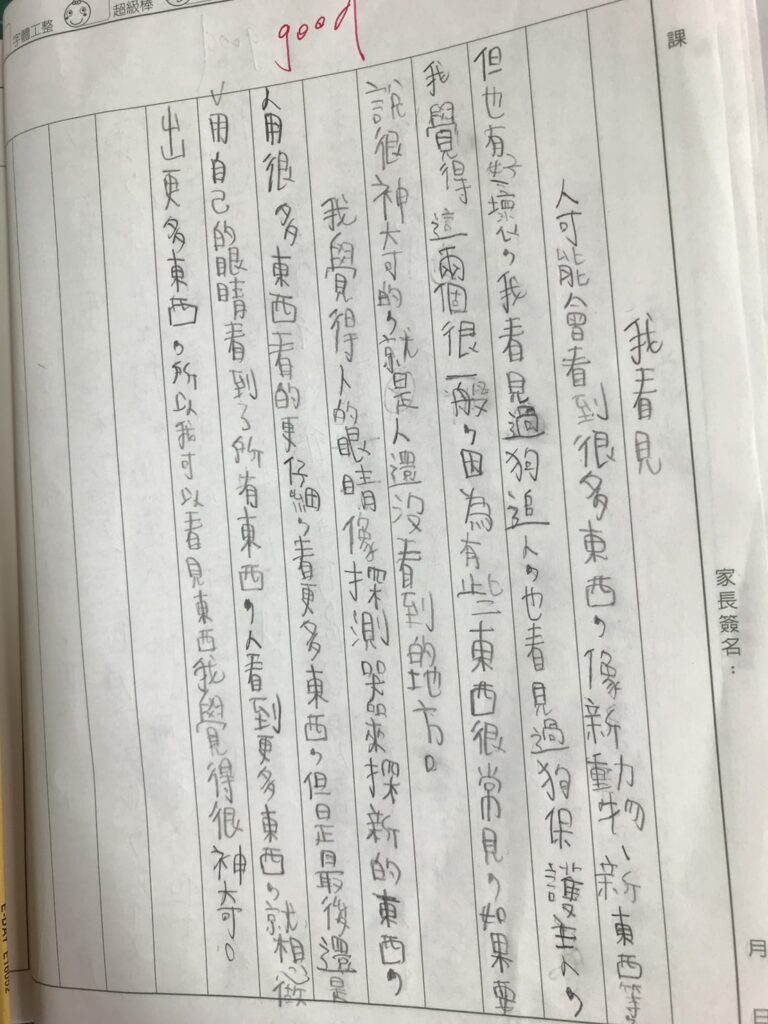 字體工整
超級棒
good
課
家長簽名：
月
日
我看見
人可能會看到很多東西，像新動物、新東西等
但也有好壞，我看見過狗追人，也看見過狗保護主人，
我覺得這兩個很一般，因為有些東西很常見，如果要
說很神奇的，就是人還沒看到的地方。
我覺得人的眼睛像探測器來探新的東西，
人用很多東西看的更仔細，看更多東西，但是最後還是
用自己的眼睛看到了所有東西，人看到更多東西，就想做
出更多東西，所以我可以看見東西我覺得很神奇。